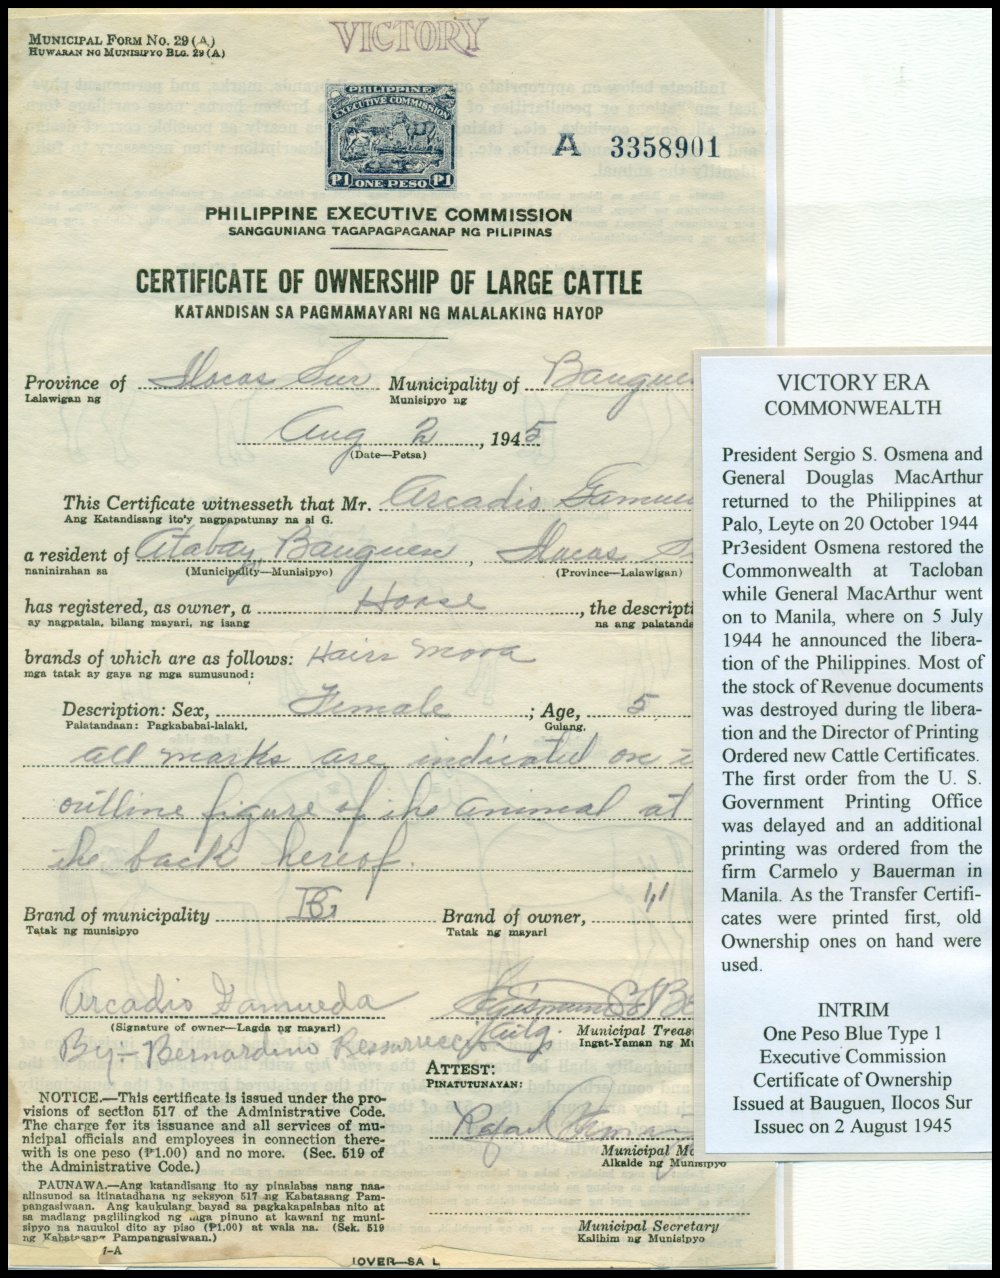 MUNICIPAL FORM No. 29 (A)
HUWARAN NG MUNISIPYO BLG. 29 (A)
VICTORY
PHILIPPINE
EXECUTIVE COMMISSION
₱1 ONE PESO ₱1
A 3358901
PHILIPPINE EXECUTIVE COMMISSION
SANGGUNIANG TAGAPAGPAGANAP NG PILIPINAS
CERTIFICATE OF OWNERSHIP OF LARGE CATTLE
KATANDISAN SA PAGMAMAYARI NG MALALAKING HAYOP
Province of Ilocos Sur Municipality of Bauguen
Lalawigan ng Munisipyo ng
Aug 2, 1945
(Date—Petsa)
This Certificate witnesseth that Mr. Arcadio
Ang Katandisang ito'y nagpapatunay na si G.
a resident of Atabay Bauguen, Ilocos S
naninirahan sa (Municipality—Munisipyo) (Province—Lalawigan)
has registered, as owner, a Horse, the descripti
ay nagpatala, bilang mayari, ng isang na ang palatanda
brands of which are as follows: Hairs mora
mga tatak ay gaya ng mga sumusunod:
Description: Sex, Female; Age, 5
Palatandaan: Pagkababai-lalaki, Gulang,
all marks are indicated on
outline figure of the animal at
the back hereof.
Brand of municipality BG Brand of owner,
Tatak ng munisipyo Tatak ng mayari
Arcadio Gamueda
(Signature of owner—Lagda ng mayari)
Actg. Municipal Treas
Ingat-Yaman ng Mu
By:- Bernardino Resurreccion
ATTEST:
PINATUTUNAYAN:
NOTICE.—This certificate is issued under the pro-
visions of section 517 of the Administrative Code.
The charge for its issuance and all services of mu-
nicipal officials and employees in connection there-
with is one peso (₱1.00) and no more. (Sec. 519 of
the Administrative Code.)
Rafael
Municipal Ma
Alkalde ng Munisipyo
PAUNAWA.—Ang katandisang ito ay pinalabas nang naa-
alinsunod sa itinatadhana ng seksyon 517 ng Kabatasang Pam-
pangasiwaan. Ang kaukulang bayad sa pagkakapalabas nito at
sa madlang paglilingkod ng mga pinuno at kawani ng muni-
sipyo na nauukol dito ay piso (₱1.00) at wala na. (Sek. 519
ng Kabatasang Pampangasiwaan.)
Municipal Secretary
Kalihim ng Munisipyo
1-A
(OVER—SA L
VICTORY ERA
COMMONWEALTH
President Sergio S. Osmena and
General Douglas MacArthur
returned to the Philippines at
Palo, Leyte on 20 October 1944
Pr3esident Osmena restored the
Commonwealth at Tacloban
while General MacArthur went
on to Manila, where on 5 July
1944 he announced the libera-
tion of the Philippines. Most of
the stock of Revenue documents
was destroyed during tle libera-
tion and the Director of Printing
Ordered new Cattle Certificates.
The first order from the U. S.
Government Printing Office
was delayed and an additional
printing was ordered from the
firm Carmelo y Bauerman in
Manila. As the Transfer Certifi-
cates were printed first, old
Ownership ones on hand were
used.
INTRIM
One Peso Blue Type 1
Executive Commission
Certificate of Ownership
Issued at Bauguen, Ilocos Sur
Issuec on 2 August 1945